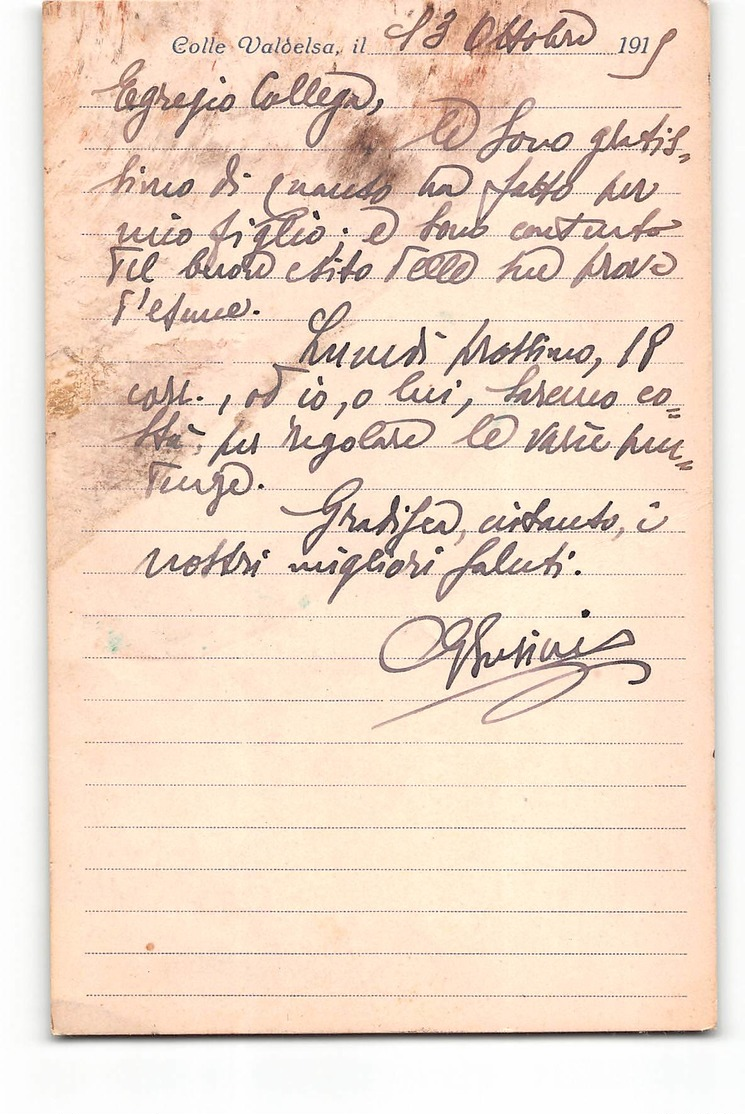 Colle Valdelsa, il 13 Ottobre 1915
Egregio Collega,
le sono gratis-
simo di quanto ha fatto per
mio figlio; e sono contento
del buon esito delle sue prove
d'esame.
Lunedì prossimo, 18
corr., od io, o lui, saremo co=
stà, per regolare le varie pen=
denze.
Gradisca, intanto, i
nostri migliori saluti.